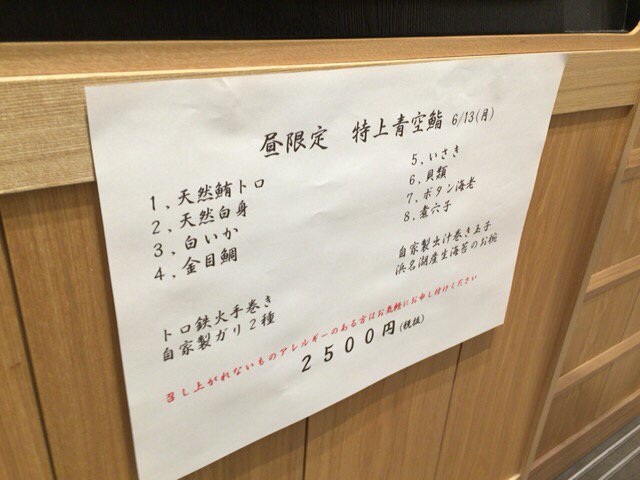 昼限定 特上青空鮨 6/13(月)
1、天然鮪トロ
2、天然白身
3、白いか
4、金目鯛
5、いさき
6、貝類
7、ボタン海老
8、煮穴子
トロ鉄火手巻き
自家製ガリ2種
自家製出汁巻き玉子
浜名湖産生海苔のお椀
召し上がれないものアレルギーのある方はお気軽にお申し付けください
2500円(税抜)